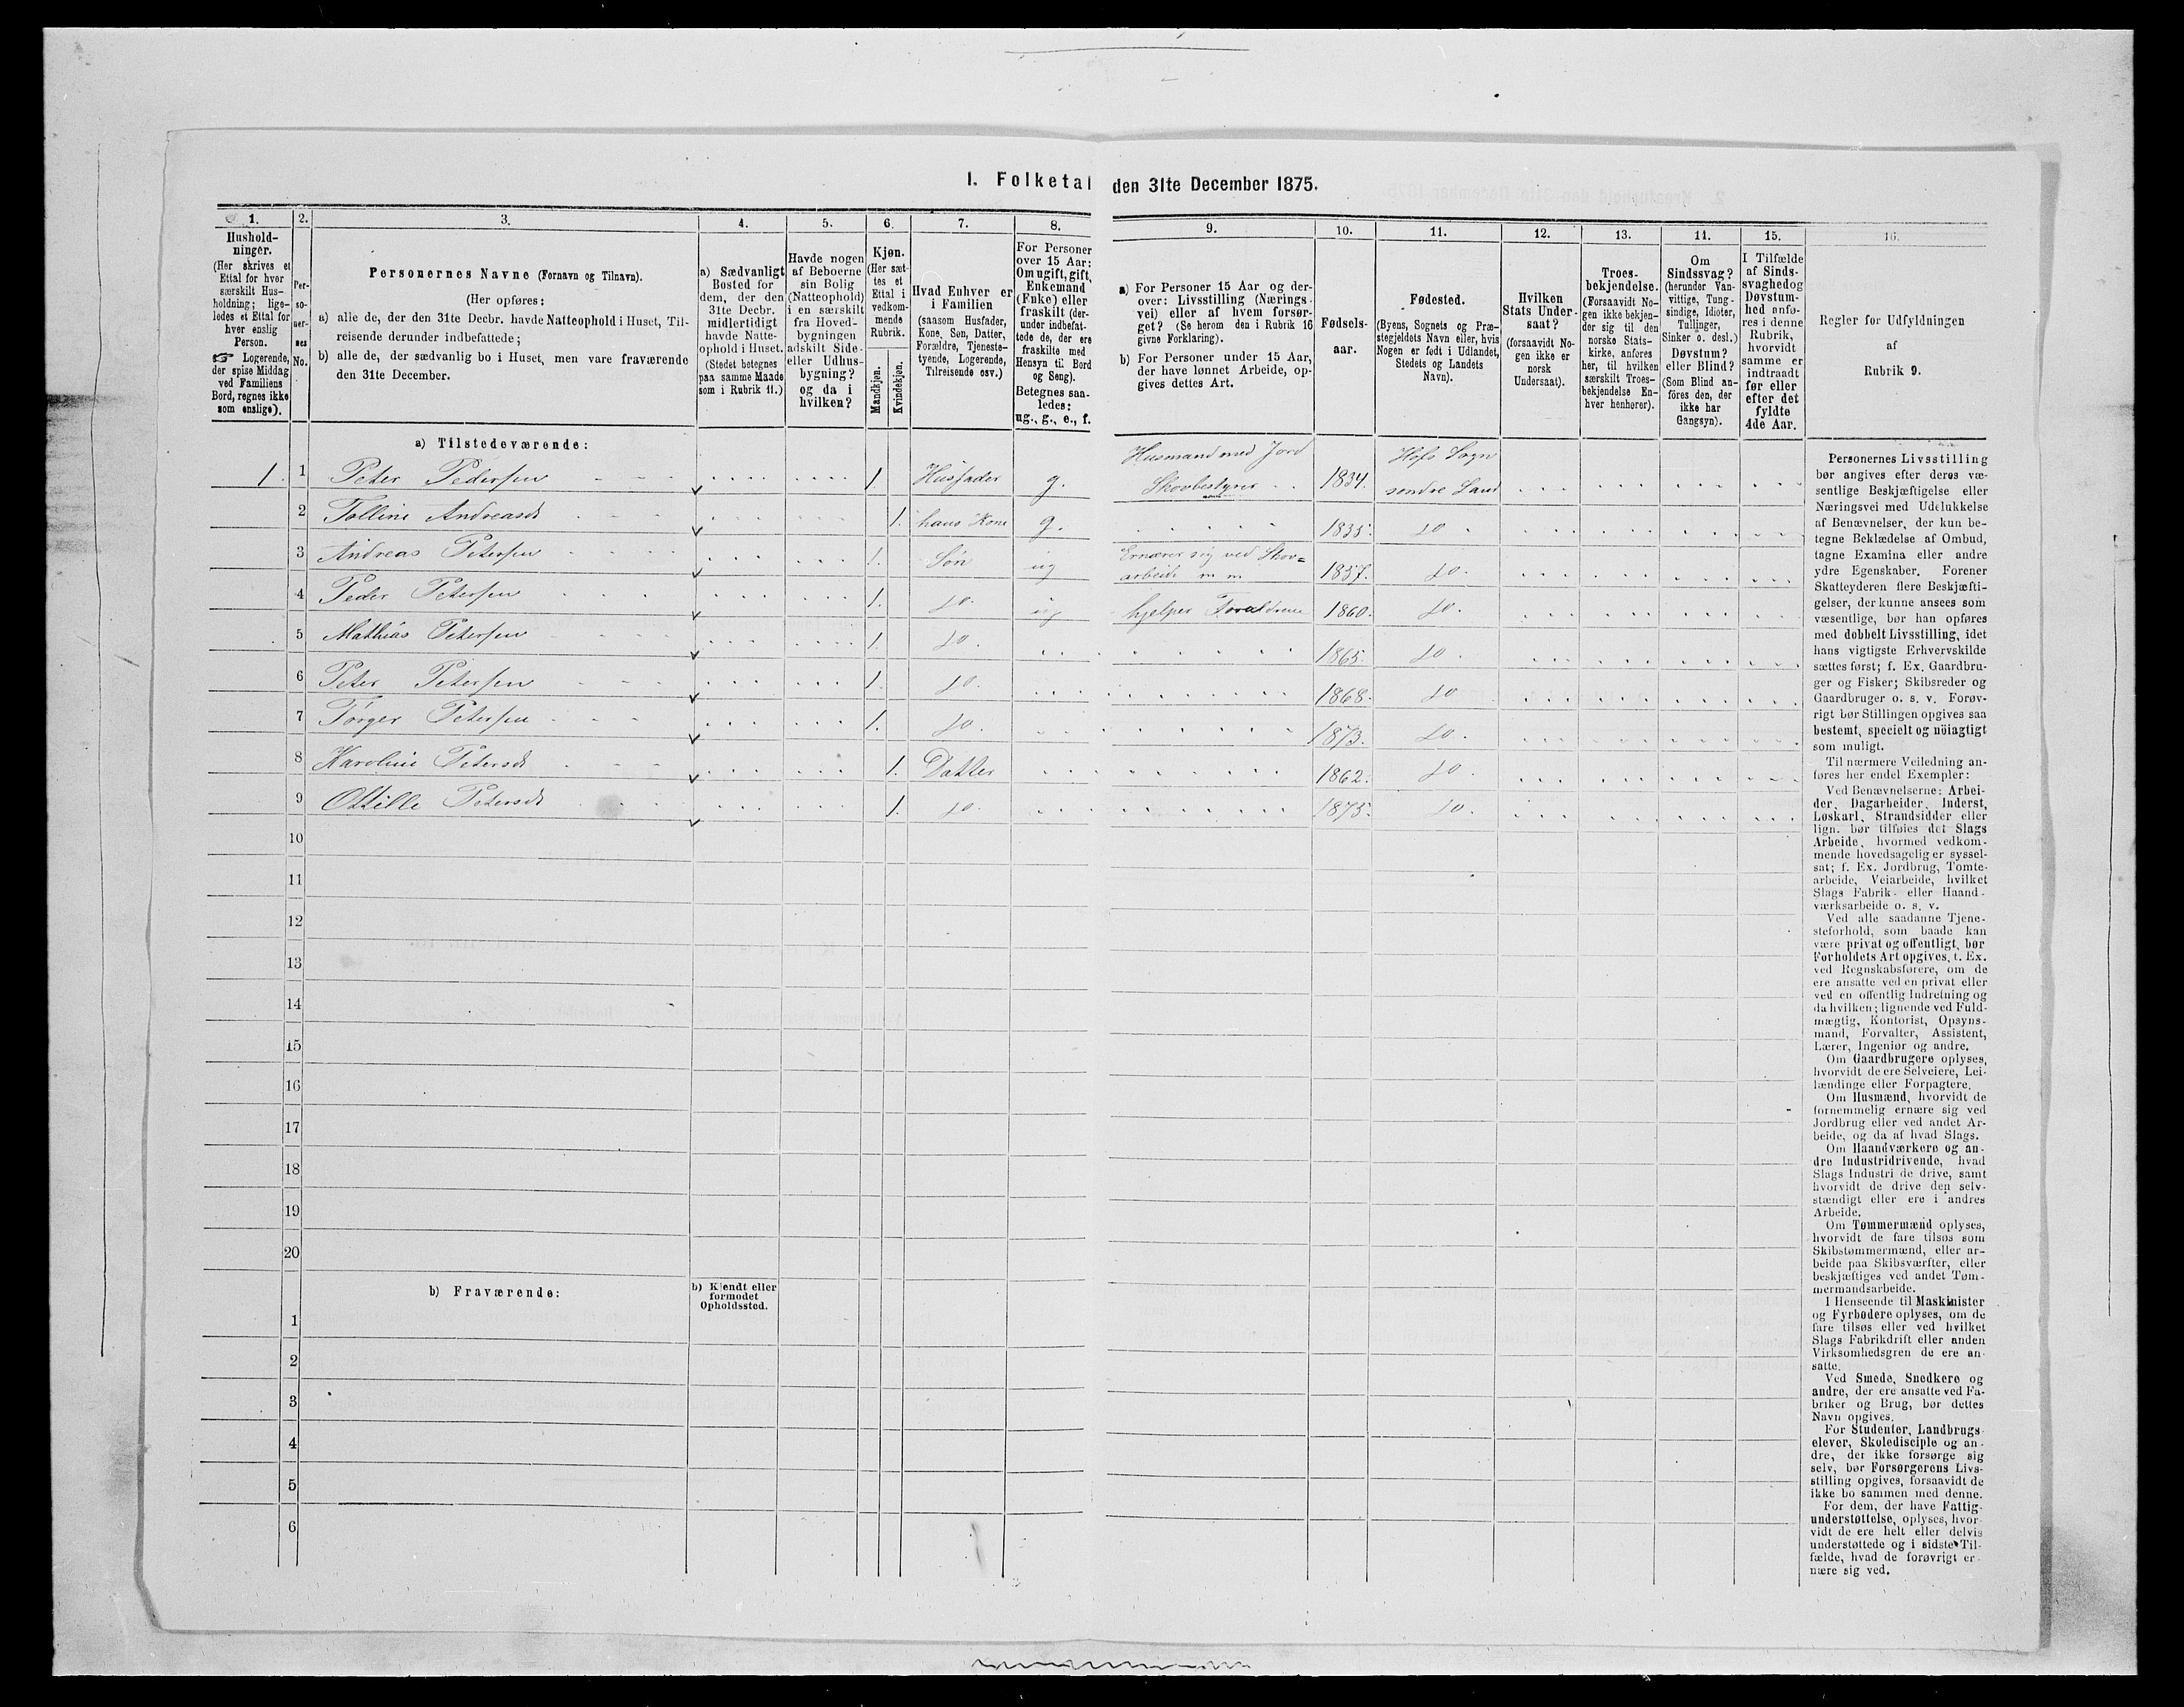 I. Folketal den 31te December 1875.
1. 2. 3. 4. 5. 6. 7. 8. 9. 10. 11. 12. 13. 14. 15. 16.
Hushold-
ninger.
(Her skrives et
Ettal for hver
særskilt Hus-
holdning; lige-
ledes et Ettal for
hver enslig
Person.
☞ Logerende,
der spise Middag
ved Familiens
Bord, regnes ikke
som enslige).
Per-
so-
ner-
nes
No.
Personernes Navne (Fornavn og Tilnavn).
(Her opføres:
a) alle de, der den 31te Decbr. havde Natteophold i Huset, Til-
reisende derunder indbefattede;
b) alle de, der sædvanlig bo i Huset, men vare fraværende
den 31te December.
a) Sædvanligt
Bosted for
dem, der den
31te Decbr.
midlertidigt
havde Natte-
ophold i Huset.
(Stedet betegnes
paa samme Maade
som i Rubrik 11.)
Havde nogen
af Beboerne
sin Bolig
(Natteophold)
i en særskilt
fra Hoved-
bygningen
adskilt Side-
eller Udhus-
bygning?
og da i
hvilken?
Kjøn.
(Her sæt-
tes et
Ettal i
vedkom-
mende
Rubrik.
Mandkjøn.
Kvindekjøn.
Hvad Enhver er
i Familien
(saasom Husfader,
Kone, Søn, Datter,
Forældre, Tjeneste-
tyende, Logerende,
Tilreisende osv.)
For Personer
over 15 Aar:
Om ugift, gift,
Enkemand
(Enke) eller
fraskilt (der-
under indbefat-
tede de, der ere
fraskilte med
Hensyn til Bord
og Seng).
Betegnes saa-
ledes:
ug., g., e., f.
a) For Personer 15 Aar og der-
over: Livsstilling (Nærings-
vei) eller af hvem forsør-
get? (Se herom den i Rubrik 16
givne Forklaring).
b) For Personer under 15 Aar,
der have lønnet Arbeide, op-
gives dettes Art.
Fødsels-
aar.
Fødested.
(Byens, Sognets og Præ-
stegjeldets Navn eller, hvis
Nogen er født i Udlandet,
Stedets og Landets
Navn).
Hvilken
Stats Under-
saat?
(forsaavidt No-
gen ikke er
norsk
Undersaat).
Troes-
bekjendelse.
(Forsaavidt No-
gen ikke bekjen-
der sig til den
norske Stats-
kirke, anføres
her, til hvilken
særskilt Troes-
bekjendelse En-
hver henhører).
Om
Sindssvag?
(herunder Van-
vittige, Tung-
sindige, Idioter,
Tullinger,
Sinker o. desl.)
Døvstum?
eller Blind?
(Som Blind an-
føres den, der
ikke har
Gangsyn).
I Tilfælde
af Sinds-
svaghed og
Døvstum-
hed anfø-
res i denne
Rubrik,
hvorvidt
samme er
indtraadt
før eller
efter det
fyldte
4de Aar.
Regler for Udfyldningen
af
Rubrik 9.
a) Tilstedeværende:
Husmand med Jord Hofs Sogn
1. 1 Peter Pedersen 1. Husfader g. Skovbestyrer 1834. søndre Land
2 Tolline Andreasd 1. hans Kone g. 1835. do
3 Andreas Petersen 1. Søn ug Ernærer sig ved Skov=
arbeide m m 1857. do.
4 Peder Petersen 1. do. ug hjelper Forældrene 1860. do.
5 Mathias Petersen 1. do. 1865. do.
6 Peter Petersen 1. do. 1868. do
7 Torger Petersen 1. do. 1873. do.
8 Karoline Petersd 1. Datter 1862. do.
9 Ottille Petersd 1. do. 1875. do.
10
11
12
13
14
15
16
17
18
19
20
b) Fraværende:
b) Kjendt eller
formodet
Opholdssted.
1
2
3
4
5
6
Personernes Livsstilling
bør angives efter deres væ-
sentlige Beskjæftigelse eller
Næringsvei med Udelukkelse
af Benævnelser, der kun be-
tegne Beklædelse af Ombud,
tagne Examina eller andre
ydre Egenskaber. Forener
Skatteyderen flere Beskjæfti-
gelser, der kunne ansees som
væsentlige, bør han opføres
med dobbelt Livsstilling, idet
hans vigtigste Erhvervskilde
sættes først; f. Ex. Gaardbru-
ger og Fisker; Skibsreder og
Gaardbruger o. s. v. Forøv-
rigt bør Stillingen opgives saa
bestemt, specielt og nöiagtigt
som muligt.
Til nærmere Veiledning an-
føres her endel Exempler:
Ved Benævnelserne: Arbei-
der, Dagarbeider, Inderst,
Løskarl, Strandsidder eller
lign. bør tilføies det Slags
Arbeide, hvormed vedkom-
mende hovedsagelig er syssel-
sat; f. Ex. Jordbrug, Tomte-
arbeide, Veiarbeide, hvilket
Slags Fabrik- eller Haand-
værksarbeide o. s. v.
Ved alle saadanne Tjene-
steforhold, som baade kan
være privat og offentligt, bør
Forholdets Art opgives, t. Ex.
ved Regnskabsførere, om de
ere ansatte ved en privat eller
ved en offentlig Indretning og
da hvilken; lignende ved Fuld-
mægtig, Kontorist, Opsyns-
mand, Forvalter, Assistent,
Lærer, Ingeniør og andre.
Om Gaardbrugere oplyses,
hvorvidt de ere Selveiere, Lei-
lændinge eller Forpagtere.
Om Husmænd, hvorvidt de
fornemmelig ernære sig ved
Jordbrug eller ved andet Ar-
beide, og da af hvad Slags.
Om Haandværkere og an-
dre Industridrivende, hvad
Slags Industri de drive, samt
hvorvidt de drive den selv-
stændigt eller ere i andres
Arbeide.
Om Tømmermænd oplyses,
hvorvidt de fare tilsøs som
Skibstømmermænd, eller ar-
beide paa Skibsværfter, eller
beskjæftiges ved andet Tøm-
mermandsarbeide.
I Henseende til Maskinister
og Fyrbødere oplyses, om de
fare tilsøs eller ved hvilket
Slags Fabrikdrift eller anden
Virksomhedsgren de ere an-
satte.
Ved Smede, Snedkere og
andre, der ere ansatte ved Fa-
briker og Brug, bør dettes
Navn opgives.
For Studenter, Landbrugs-
elever, Skoledisciple og an-
dre, der ikke forsørge sig
selv, bør Forsørgerens Livs-
stilling opgives, forsaavidt de
ikke bo sammen med denne.
For dem, der have Fattig-
understøttelse, oplyses, hvor-
vidt de ere helt eller delvis
understøttede og i sidste Til-
fælde, hvad de forøvrigt er-
nære sig ved.